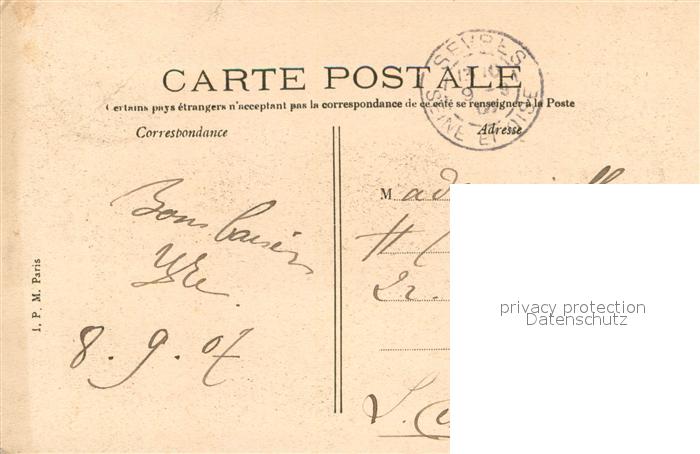 SEVRES
SEINE ET OISE
CARTE POSTALE
Certains pays étrangers n'acceptant pas la correspondance de ce côté se renseigner à la Poste
Correspondance
Adresse
Bons baisers
8.9.07
M
22.
I. P. M. Paris
privacy protection
Datenschutz